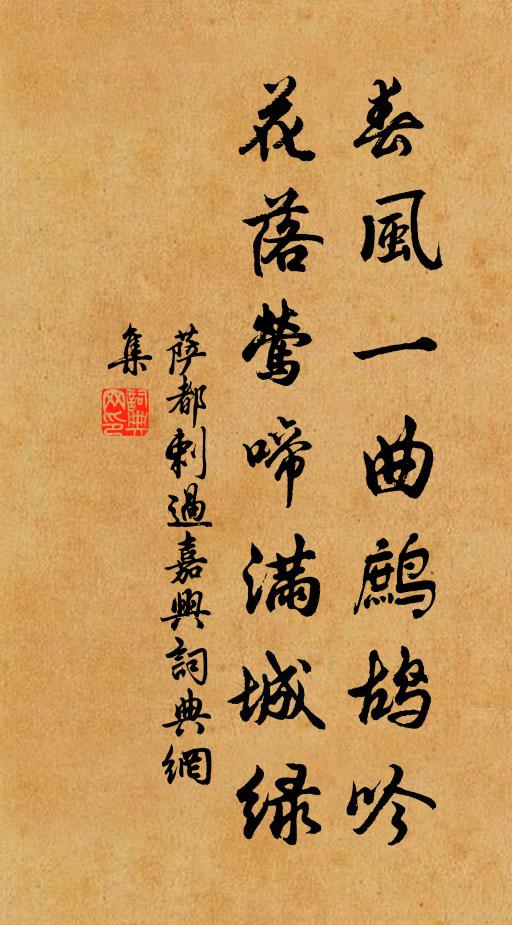 春風一曲鷓鴣吟
花落鶯啼滿城緑
薩都剌過嘉興詞典網
集
詞典
网印